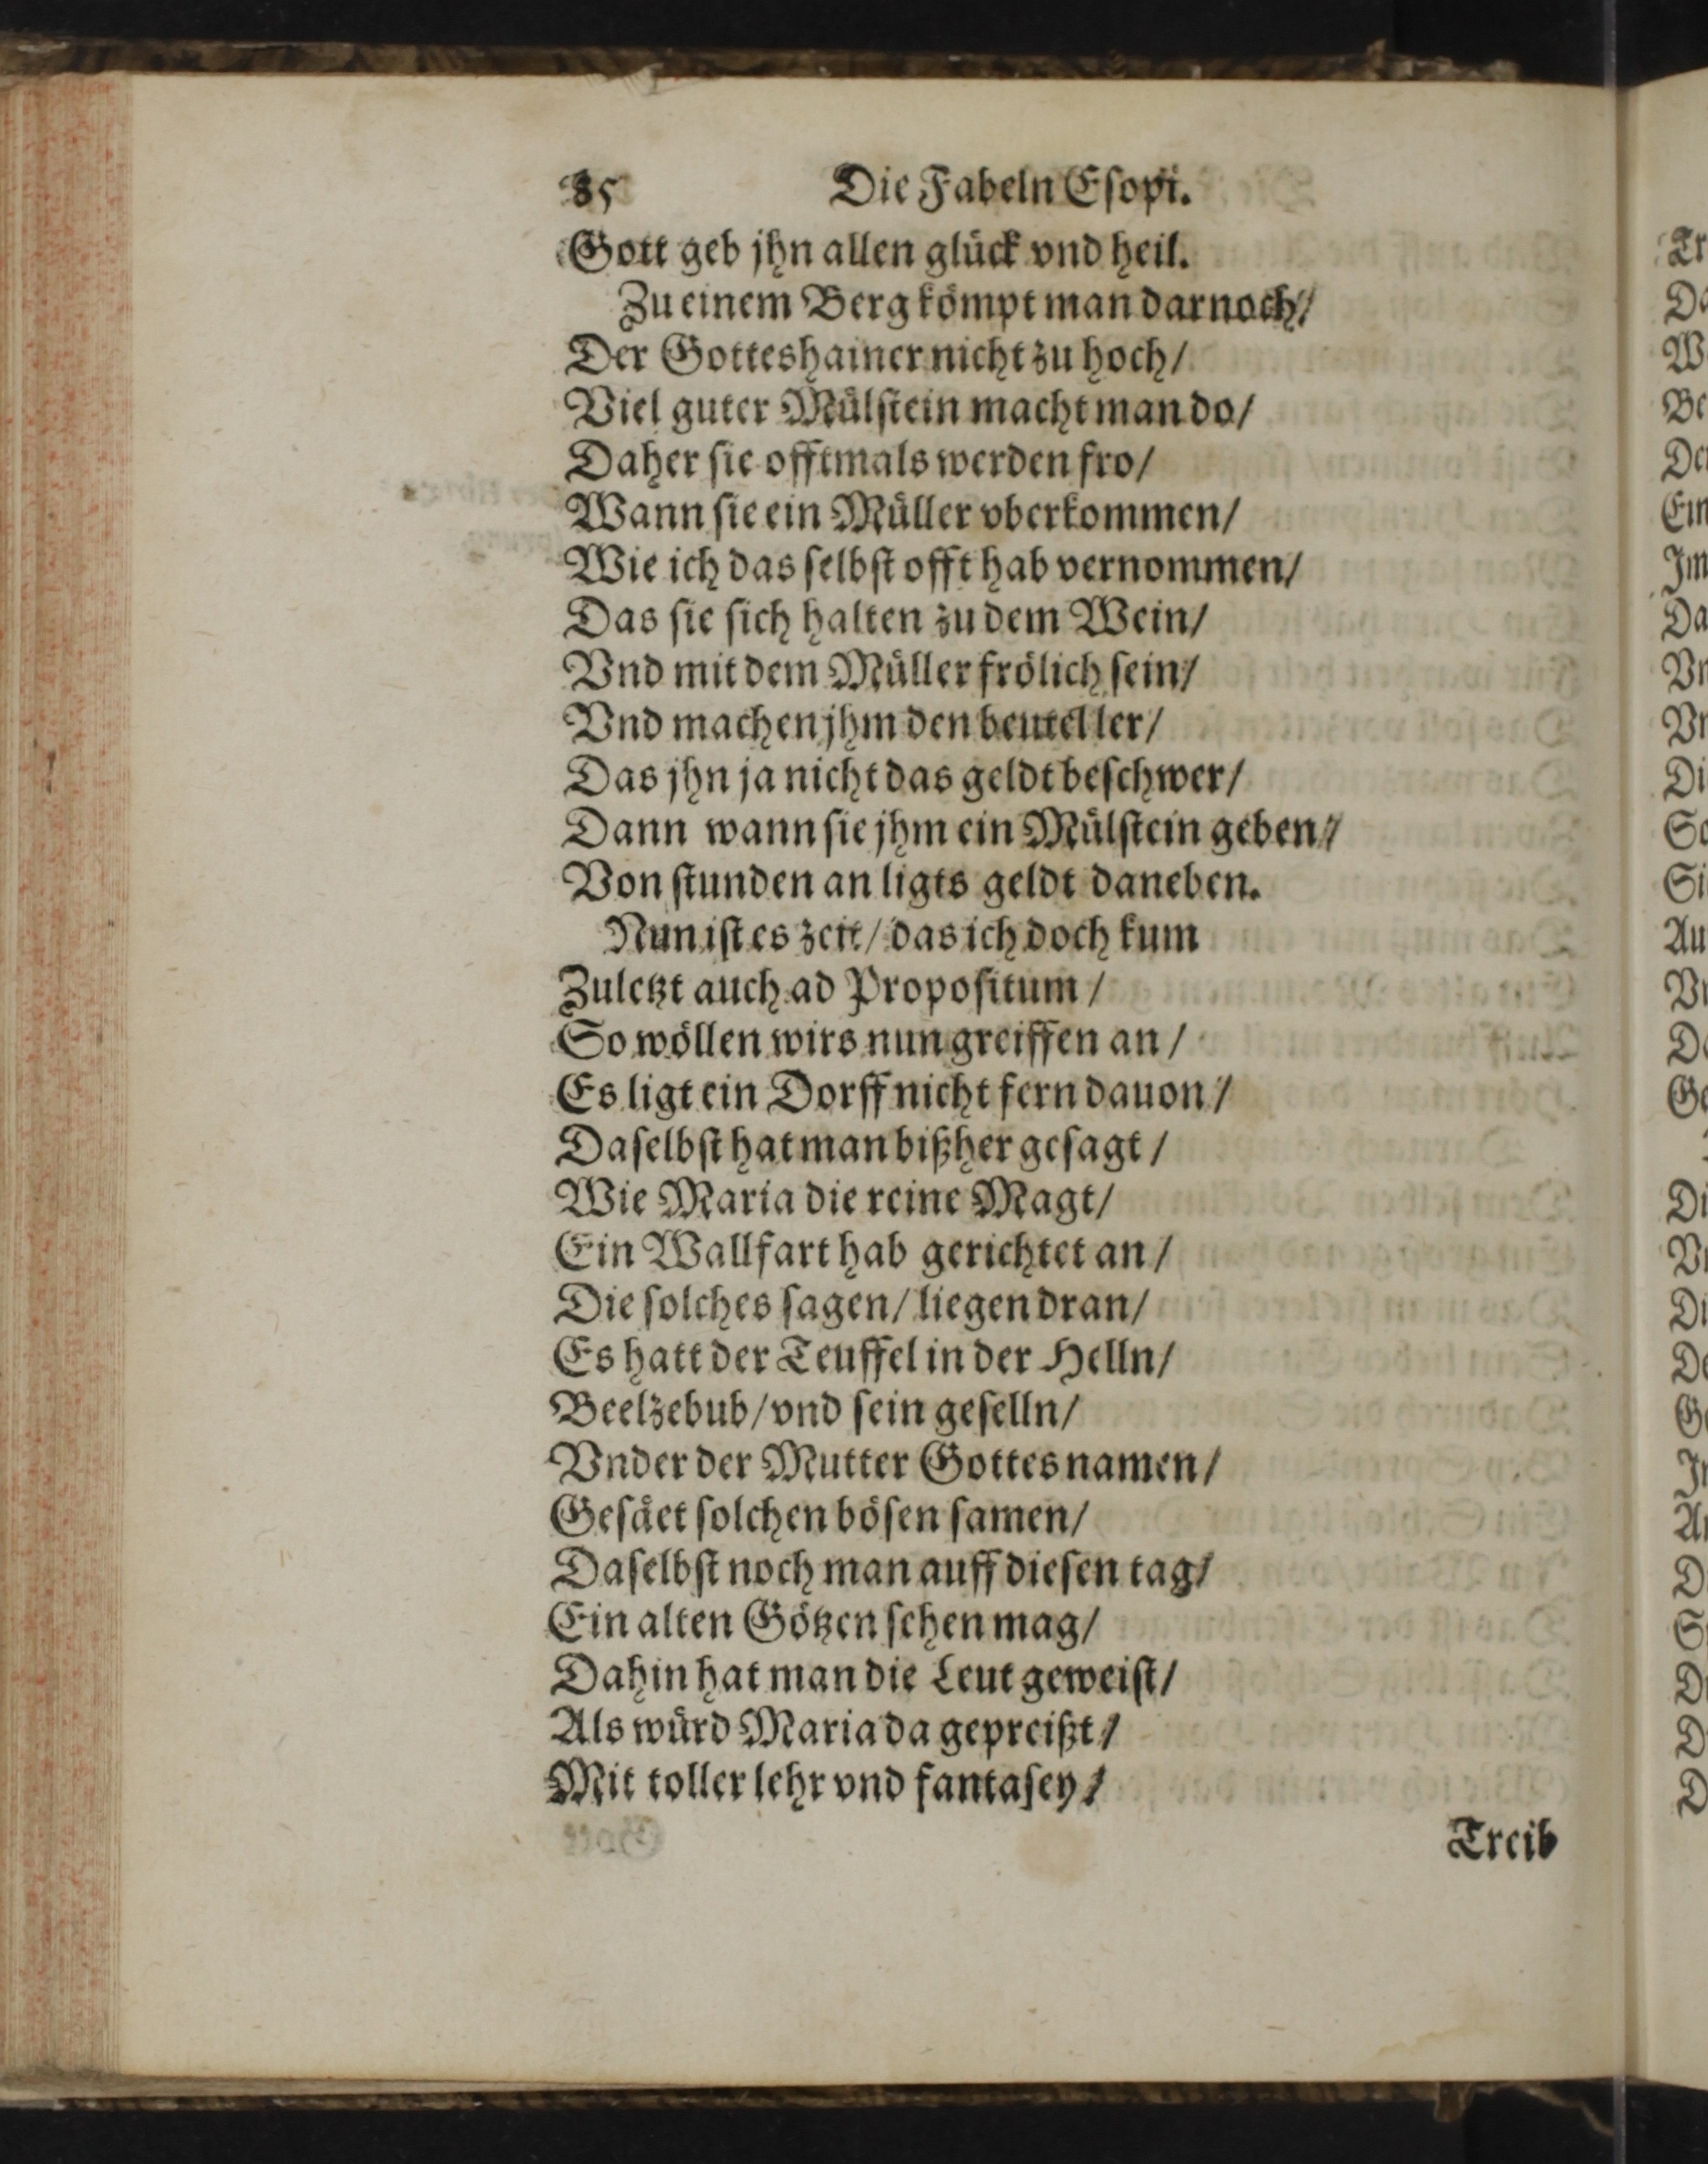 85 Die Fabeln Eſopi.
Gott geb jhn allen glück vnd heil.
Zu einem Berg kömpt man darnoch/
Der Gotteshainer nicht zu hoch/
Viel guter Mülſtein macht man do/
Daher ſie offtmals werden fro/
Wann ſie ein Müller vberkommen/
Wie ich das ſelbſt offt hab vernommen/
Das ſie ſich halten zu dem Wein/
Vnd mit dem Müller frölich ſein/
Vnd machen jhm den beutel ler/
Das jhn ja nicht das geldt beſchwer/
Dann wann ſie jhm ein Mülſtein geben/
Von ſtunden an ligts geldt daneben.
Nun iſt es zeit/ das ich doch kum
Zuletzt auch ad Propoſitum/
So wöllen wirs nun greiffen an/
Es ligt ein Dorff nicht fern dauon/
Daſelbſt hat man bißher geſagt/
Wie Maria die reine Magt/
Ein Wallfart hab gerichtet an/
Die ſolches ſagen/ liegen dran/
Es hatt der Teuffel in der Helln/
Beelzebub/ vnd ſein geſelln/
Vnder der Mutter Gottes namen/
Geſäet ſolchen böſen ſamen/
Daſelbſt noch man auff dieſen tag/
Ein alten Götzen ſehen mag/
Dahin hat man die Leut geweiſt/
Als würd Maria da gepreißt/
Mit toller lehr vnd fantaſey/
Treib